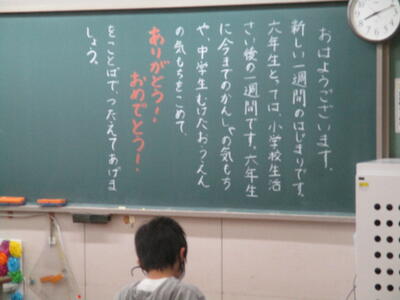 おはようございます。
新しい一週間のはじまりです。
六年生とっては、小学校生活
さい後の一週間です。六年生
に今までのかんしゃの気もち
や、中学生むけたおうえん
の気もちをこめて、
ありがとう！
おめでとう！
をことばで、つたえてあげま
しょう。